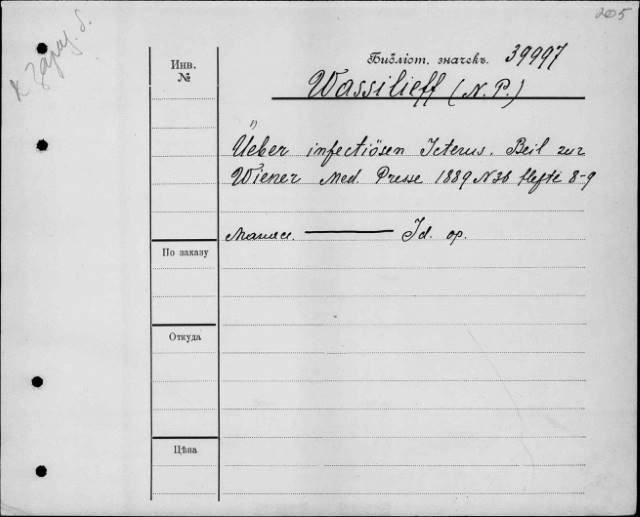 205
к зараз. б.
Инв.
№
Библіот. значекъ. 39997
Wassilieff (N. P.)
Ueber infectiösen Icterus. Beil zur
Wiener Med. Presse 1889 N36 Hefte 8-9
Id. op.
По заказу
Откуда
Цѣна